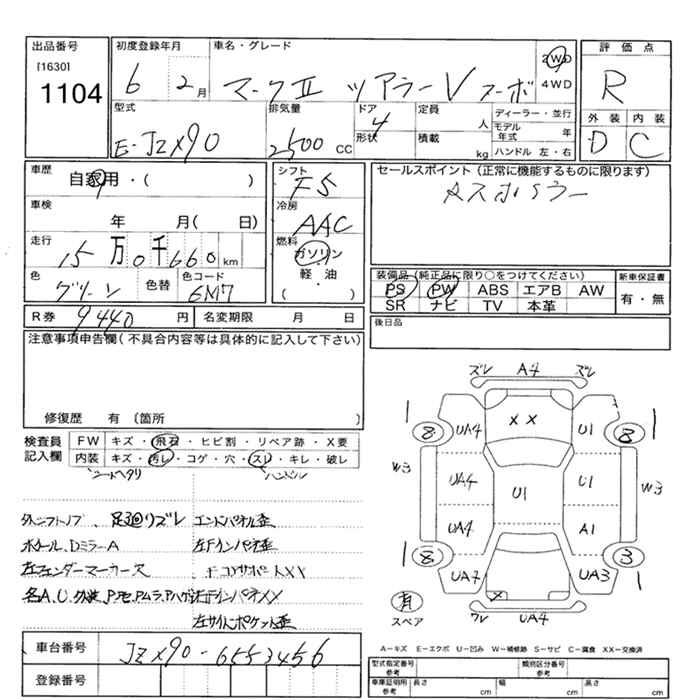 出品番号
[1630]
1104
初度登録年月
6 2月
車名・グレード
マークⅡ ツアラーV ターボ
2WD
4WD
評価点
R
外装 内装
D C
型式
E-JZX90
排気量
2500 CC
ドア
4
形状
定員
人
積載
kg
ディーラー・並行
モデル年式 年
ハンドル 左・右
車歴
自家用・( )
車検
年 月( 日)
走行
15万0千660km
色
グリーン
色替
色コード
6M7
シフト
F5
冷房
AAC
燃料
ガソリン
軽・油
( )
セールスポイント(正常に機能するものに限ります)
装備品(純正品に限り○をつけてください)
PS PW ABS エアB AW
SR ナビ TV 本革
新車保証書
有・無
後日品
R券
9440円
名変期限 月 日
注意事項申告欄(不具合内容等は具体的に記入して下さい)
修復歴 有(箇所 )
検査員記入欄
FW キズ・飛石・ヒビ割・リペア跡・X要
内装 キズ・汚レ・コゲ・穴・スレ・キレ・破レ
シートヘタリ ハンドル
外シフトノブ、足廻リズレ
エンドパネル歪
ホイール、DミラーA
左Fインパネ歪
左フェンダーマーカー欠
F コアサポートXX
左サイドポケット歪
車台番号
JZX90-6553456
登録番号
ズレ A4 ズレ
1 8 UA4 XX U1 8 1
W3 UA4 U1 U1 W3
UA4 A1
1 8 UA2 X UA3 3 1
有
スペア
ズレ UA4
A-キズ E-エクボ U-凹み W-補修跡 S-サビ C-腐食 XX-交換済
型式指定番号 参考
類別区分番号 参考
車庫証明用 参考
長さ cm
幅 cm
高さ cm